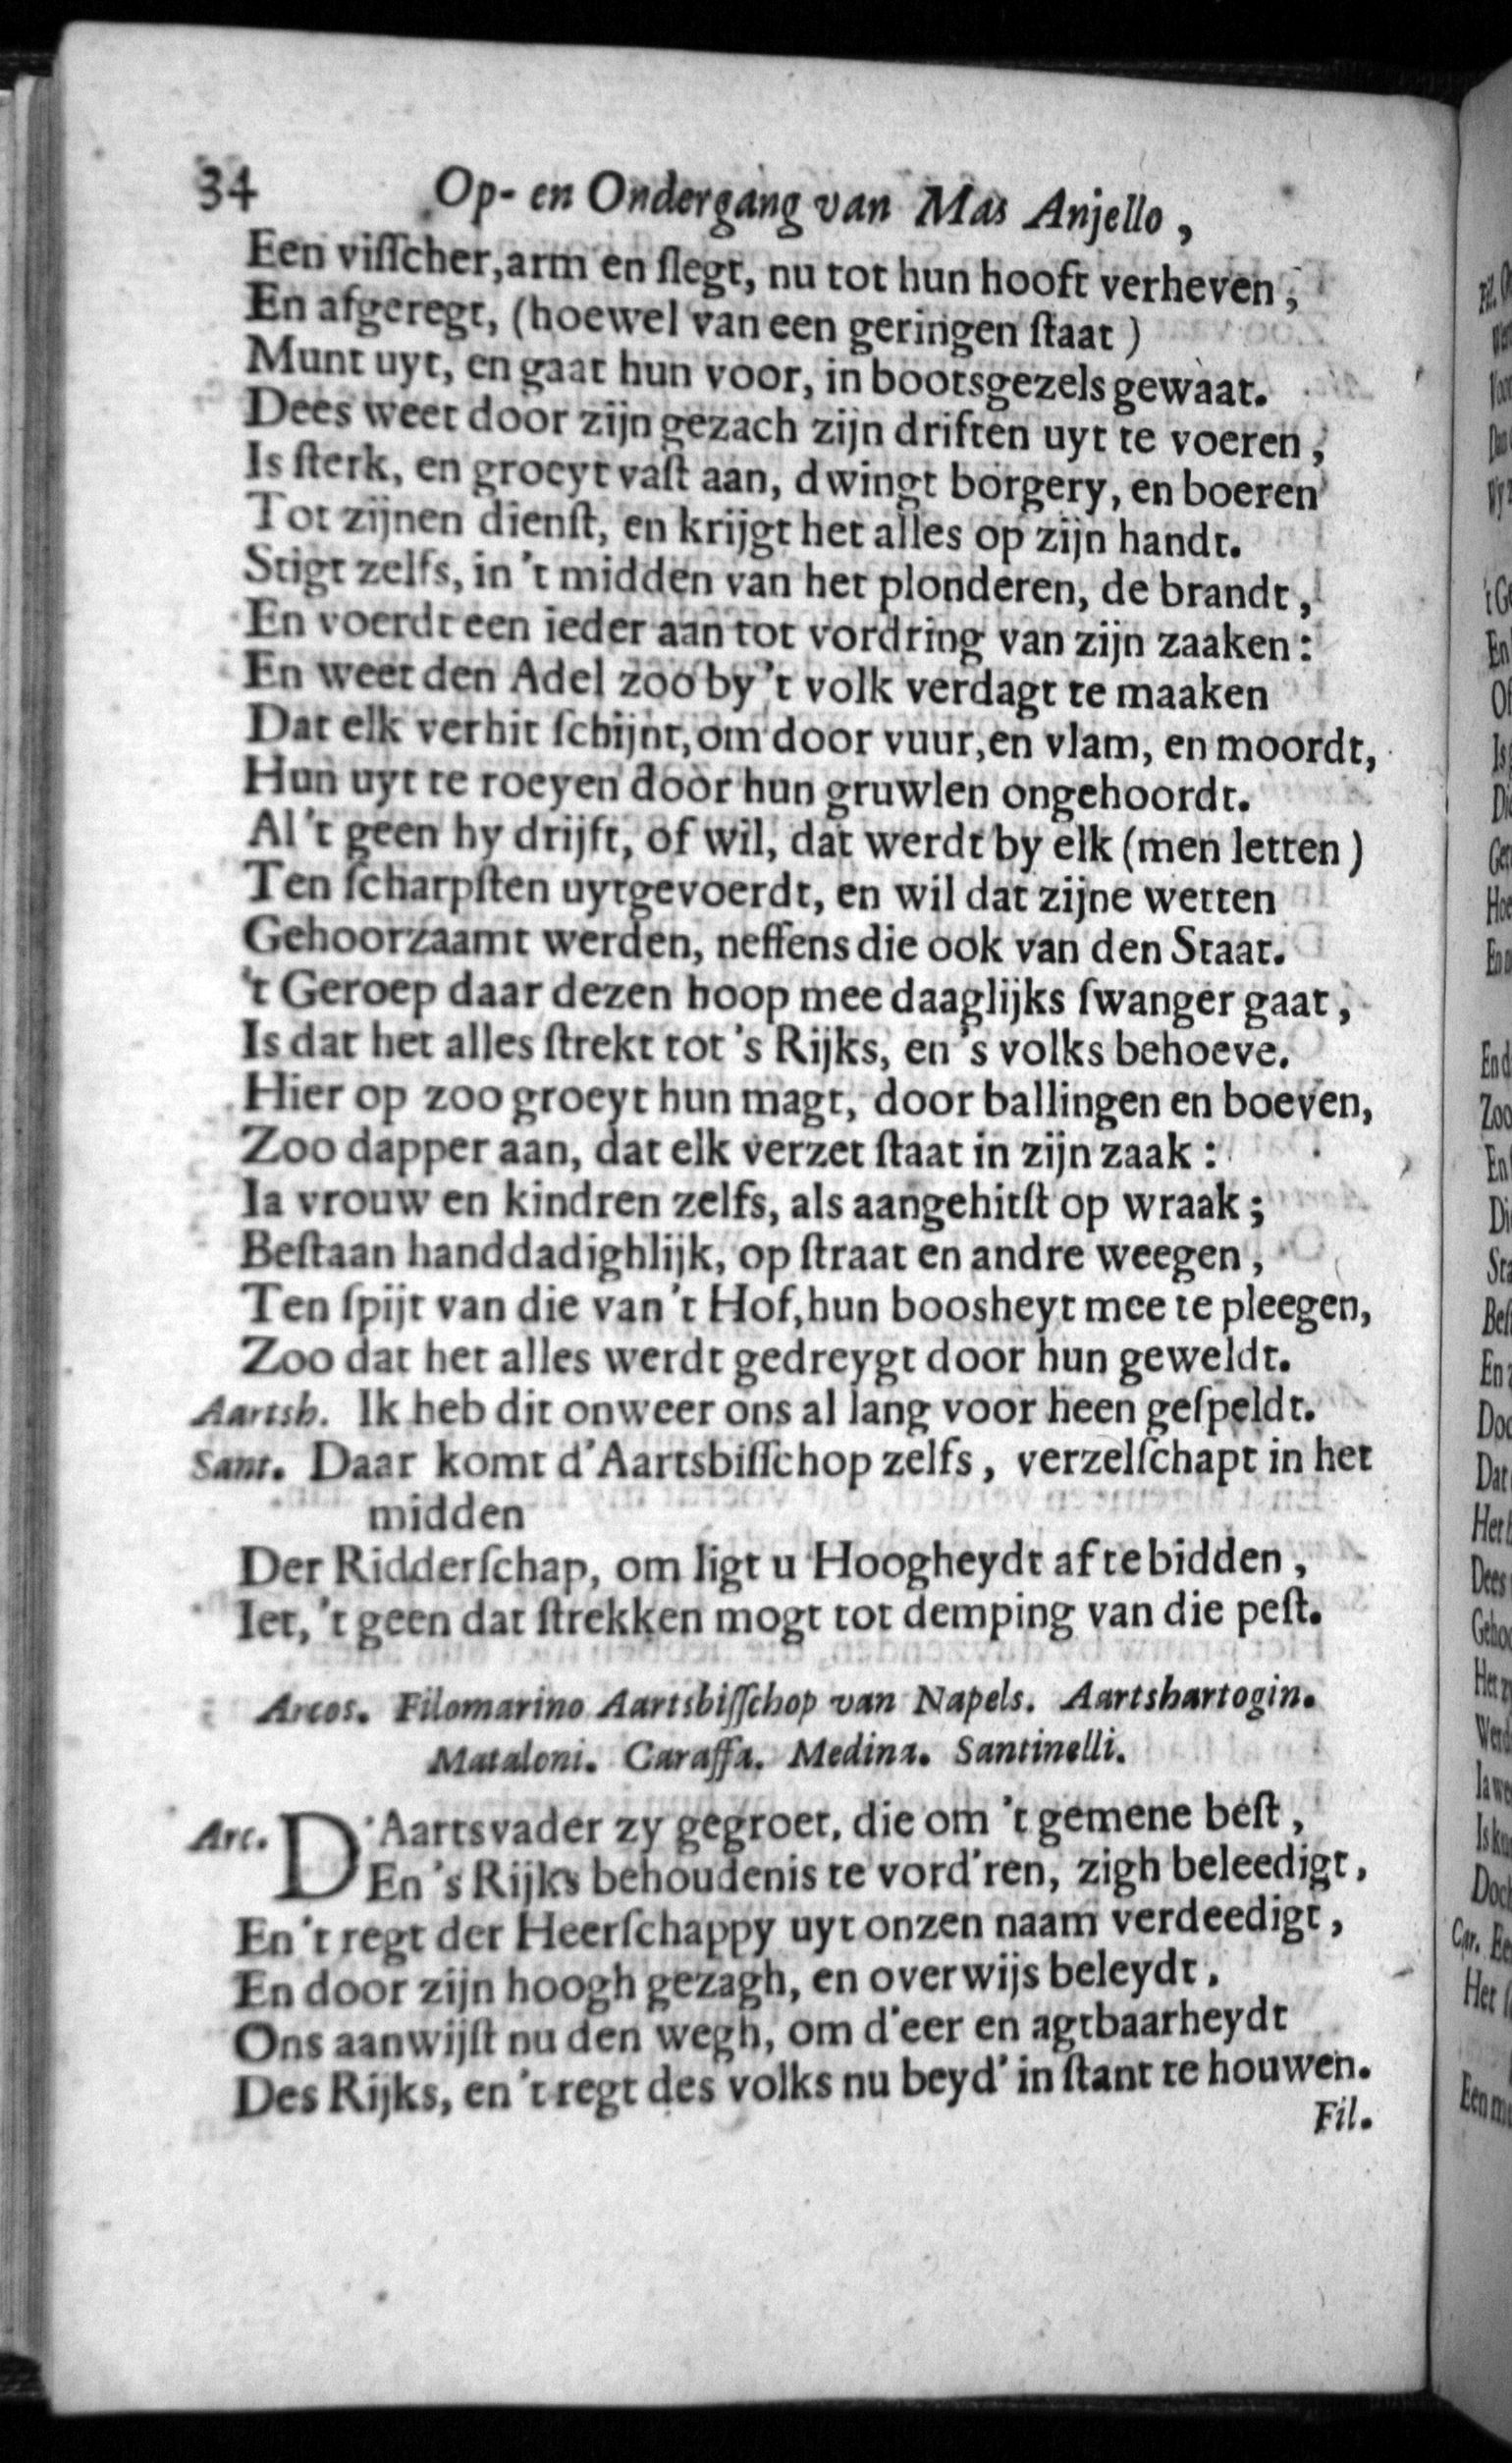 34 Op- en Ondergang van Mas Anjello,
Een viſſcher, arm en ſlegt, nu tot hun hooft verheven,
En afgeregt, (hoewel van een geringen ſtaat)
Munt uyt, en gaat hun voor, in bootsgezels gewaat.
Dees weet door zijn gezach zijn driften uyt te voeren,
Is ſterk, en groeyt vaſt aan, dwingt borgery, en boeren
Tot zijnen dienſt, en krijgt het alles op zijn handt.
Stigt zelfs, in 't midden van het plonderen, de brandt,
En voerdt een ieder aan tot vordring van zijn zaaken:
En weet den Adel zoo by 't volk verdagt te maaken
Dat elk verhit ſchijnt, om door vuur, en vlam, en moordt,
Hun uyt te roeyen door hun gruwlen ongehoordt.
Al 't geen hy drijft, of wil, dat werdt by elk (men letten)
Ten ſcharpſten uytgevoerdt, en wil dat zijne wetten
Gehoorzaamt werden, neffens die ook van den Staat.
't Geroep daar dezen hoop mee daaglijks ſwanger gaat,
Is dat het alles ſtrekt tot 's Rijks, en 's volks behoeve.
Hier op zoo groeyt hun magt, door ballingen en boeven,
Zoo dapper aan, dat elk verzet ſtaat in zijn zaak:
Ia vrouw en kindren zelfs, als aangehitſt op wraak;
Beſtaan handdadighlijk, op ſtraat en andre weegen,
Ten ſpijt van die van 't Hof, hun boosheyt mee te pleegen,
Zoo dat het alles werdt gedreygt door hun geweldt.
Aartsb. Ik heb dit onweer ons al lang voor heen geſpeldt.
Sant. Daar komt d'Aartsbiſſchop zelfs, verzelſchapt in het
midden
Der Ridderſchap, om ligt u Hoogheydt af te bidden,
Iet, 't geen dat ſtrekken mogt tot demping van die peſt.
Arcos. Filomarino Aartsbiſſchop van Napels. Aartshartogin.
Mataloni. Caraffa. Medina. Santinelli.
Arc. D'Aartsvader zy gegroet, die om 't gemene beſt,
En 's Rijks behoudenis te vord'ren, zigh beleedigt,
En 't regt der Heerſchappy uyt onzen naam verdeedigt,
En door zijn hoogh gezagh, en overwijs beleydt,
Ons aanwijſt nu den wegh, om d'eer en agtbaarheydt
Des Rijks, en 't regt des volks nu beyd' in ſtant te houwen.
Fil.